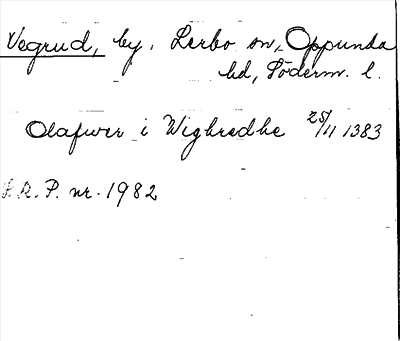 Vegrud, by. Lerbo sn, Oppunda
hd, Söderm. l.
Olafwer i Wighredhe 25/11 1383
S.R.P. nr. 1982